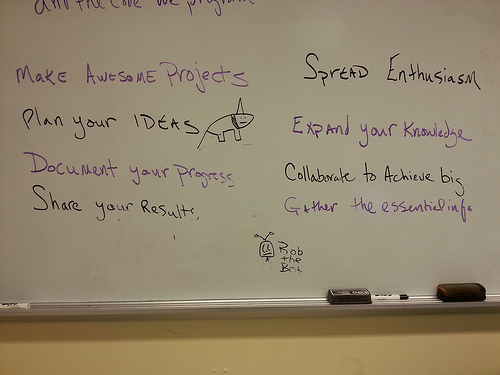 and the code we program
Make Awesome Projects
Plan your IDEAS
Document your Progress
Share your Results,
Spread Enthusiasm
Expand your Knowledge
Collaborate to Achieve big
Gather the essential info
Rob
the
Bot